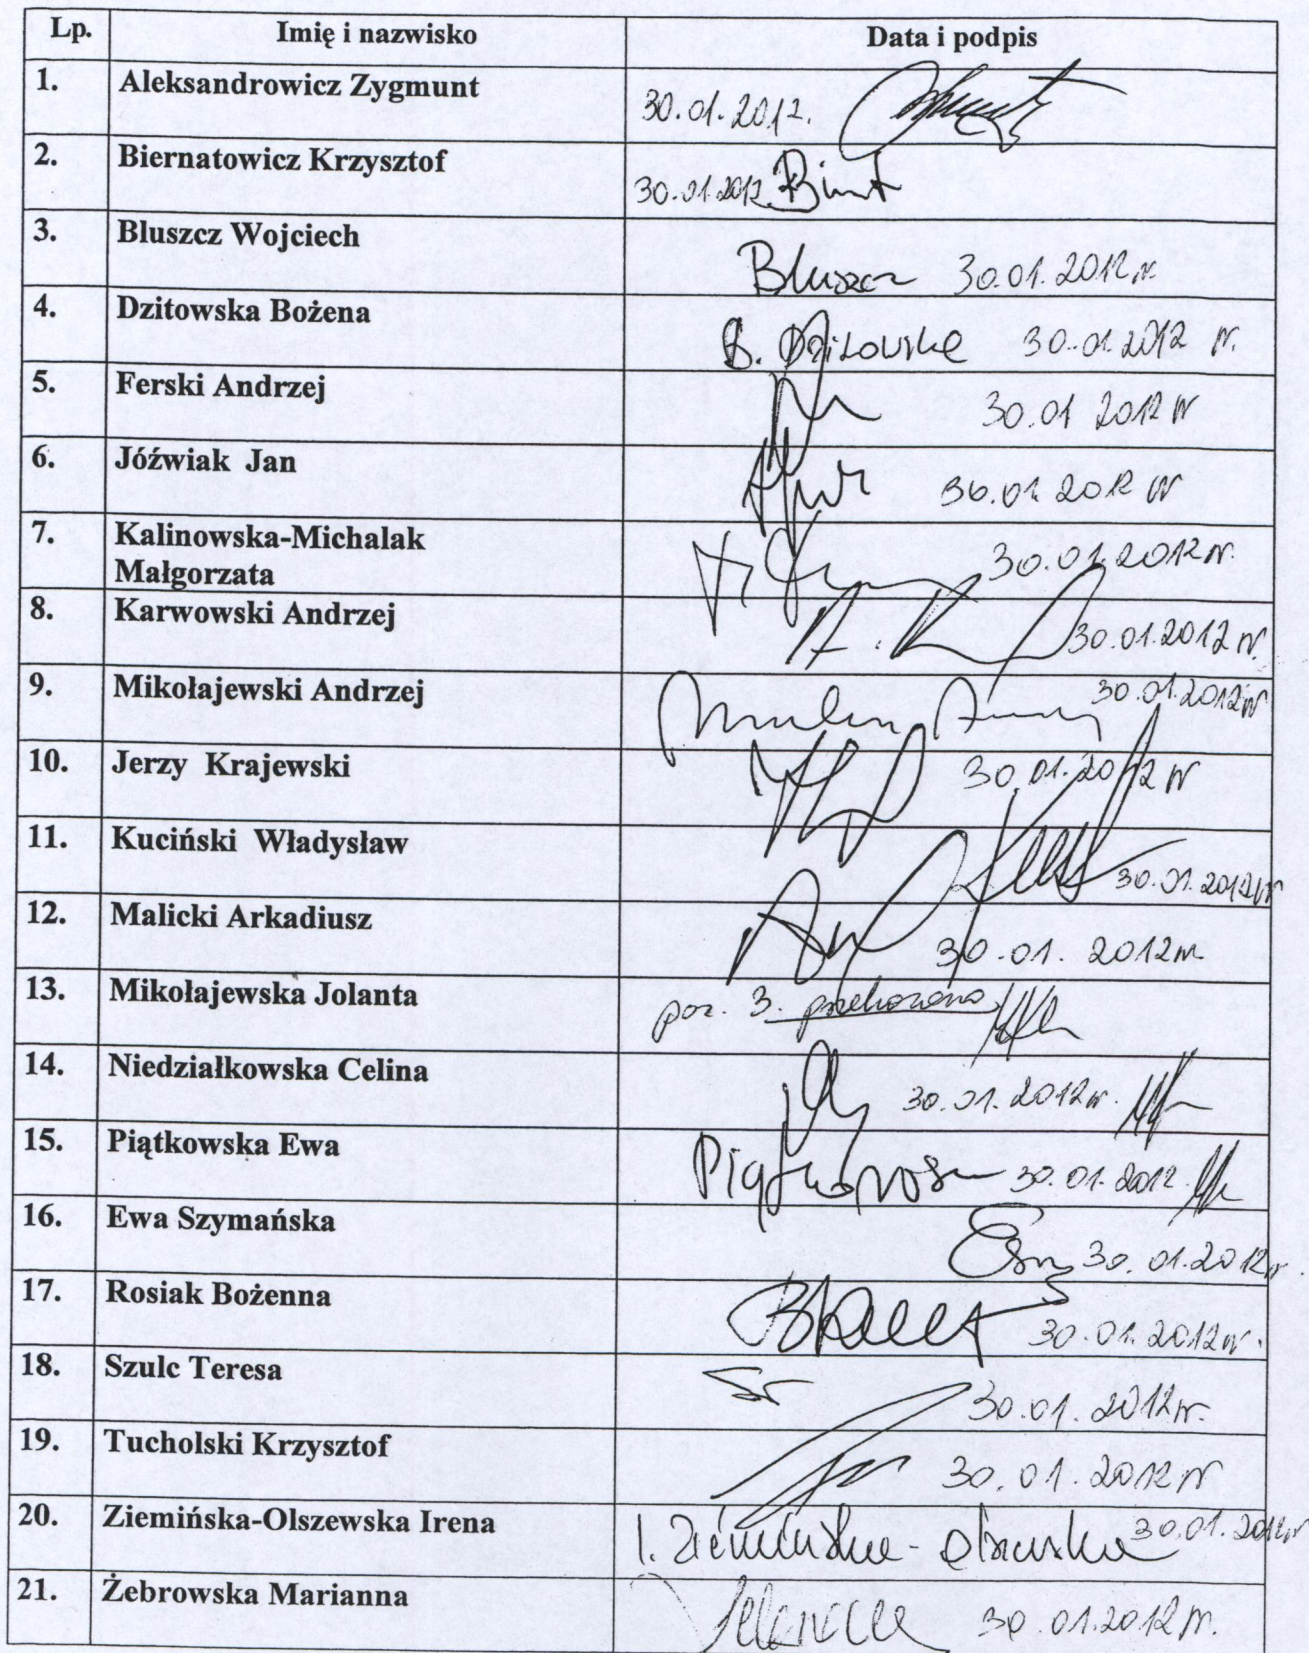 Lp. Imię i nazwisko Data i podpis
1. Aleksandrowicz Zygmunt 30.01.2012.
2. Biernatowicz Krzysztof 30.01.2012.
3. Bluszcz Wojciech Bluszcz 30.01.2012 r.
4. Dzitowska Bożena B. Dzitowska 30.01.2012 r.
5. Ferski Andrzej 30.01 2012 r
6. Jóźwiak Jan 30.01 2012 r
7. Kalinowska-Michalak 30.01.2012 r.
Małgorzata
8. Karwowski Andrzej 30.01.2012 r.
9. Mikołajewski Andrzej 30.01.2012 r
10. Jerzy Krajewski 30.01.2012 r
11. Kuciński Władysław 30.01.2012 r
12. Malicki Arkadiusz 30.01. 2012 r.
13. Mikołajewska Jolanta poz. 3.
14. Niedziałkowska Celina 30.01.2012 r.
15. Piątkowska Ewa 30.01.2012
16. Ewa Szymańska 30.01.2012 r.
17. Rosiak Bożenna 30.01.2012 r.
18. Szulc Teresa 30.01.2012 r.
19. Tucholski Krzysztof 30.01.2012 r
20. Ziemińska-Olszewska Irena I. Ziemińska-Olszewska 30.01.2012 r
21. Żebrowska Marianna 30.01.2012 r.